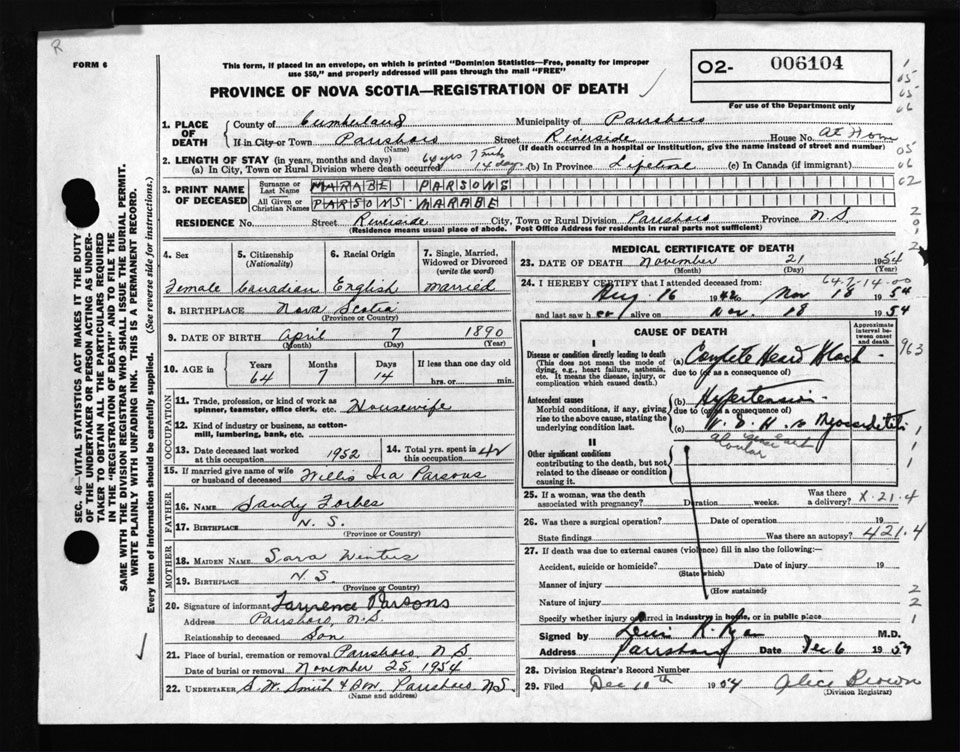 R
FORM 6
This form, if placed in an envelope, on which is printed "Dominion Statistics—Free, penalty for improper
use $50," and properly addressed will pass through the mail "FREE"
PROVINCE OF NOVA SCOTIA—REGISTRATION OF DEATH
02- 006104
For use of the Department only
1. PLACE OF DEATH
County of Cumberland Municipality of Parrsboro
If in City or Town Parrsboro Street Riverside House No. At Home
(Name) (If death occurred in a hospital or institution, give the name instead of street and number)
2. LENGTH OF STAY (in years, months and days)
(a) In City, Town or Rural Division where death occurred 64 yrs 7 mths 14 days (b) In Province Lifetime (c) In Canada (if immigrant)
3. PRINT NAME OF DECEASED
Surname or Last Name MARABE PARSONS
All Given or Christian Names PARSONS MARABE
RESIDENCE No. Street Riverside City, Town or Rural Division Parrsboro Province N.S.
(Residence means usual place of abode. Post Office Address for residents in rural parts not sufficient)
4. Sex
Female
5. Citizenship (Nationality)
Canadian
6. Racial Origin
English
7. Single, Married, Widowed or Divorced (write the word)
Married
8. BIRTHPLACE Nova Scotia
(Province or Country)
9. DATE OF BIRTH April 7 1890
(Month) (Day) (Year)
10. AGE in Years 64 Months 7 Days 14 If less than one day old
hrs. or min.
OCCUPATION
11. Trade, profession, or kind of work as
spinner, teamster, office clerk, etc. Housewife
12. Kind of industry or business, as cotton-
mill, lumbering, bank, etc.
13. Date deceased last worked
at this occupation 1952
14. Total yrs. spent in
this occupation 42
15. If married give name of wife
or husband of deceased Willis Ira Parsons
FATHER
16. NAME Sandy Forbes
17. BIRTHPLACE N.S.
(Province or Country)
MOTHER
18. MAIDEN NAME Sara
19. BIRTHPLACE N.S.
(Province or Country)
20. Signature of informant Lawrence Parsons
Address Parrsboro, N.S.
Relationship to deceased Son
21. Place of burial, cremation or removal Parrsboro, N.S.
Date of burial or removal November 25, 1954
22. UNDERTAKER S. W. Smith & Son. Parrsboro NS
(Name and address)
MEDICAL CERTIFICATE OF DEATH
23. DATE OF DEATH November 21 1954
(Month) (Day) (Year)
647-14-00
24. I HEREBY CERTIFY that I attended deceased from:
Aug 16 to Nov 18 1954
and last saw her alive on Nov. 18 1954
CAUSE OF DEATH
Approximate interval between onset and death
I
Disease or condition directly leading to death
(This does not mean the mode of
dying, e.g., heart failure, asthenia,
etc. It means the disease, injury, or
complication which caused death.)
(a) Complete Heart Block
due to (or as a consequence of)
963
Antecedent causes
Morbid conditions, if any, giving
rise to the above cause, stating the
underlying condition last.
(b) Hypertension
due to (or as a consequence of)
(c) Myocarditis
II
Other significant conditions
contributing to the death, but not
related to the disease or condition
causing it.
25. If a woman, was the death
associated with pregnancy? Duration weeks. Was there a delivery? X-21-4
26. Was there a surgical operation? Date of operation 19
State findings Was there an autopsy? 421.4
27. If death was due to external causes (violence) fill in also the following:—
Accident, suicide or homicide? Date of injury 19
(State which)
Manner of injury
(How sustained)
Nature of injury
Specify whether injury occurred in industry, in home, or in public place
Signed by R. Ryan M.D.
Address Parrsboro Date Dec 6 1954
28. Division Registrar's Record Number
29. Filed Dec 10th 1954 Alice Brown
(Division Registrar)
SEC. 46—VITAL STATISTICS ACT MAKES IT THE DUTY
OF THE UNDERTAKER OR PERSON ACTING AS UNDER-
TAKER TO OBTAIN ALL THE PARTICULARS REQUIRED
IN THE "REGISTRATION OF DEATH" AND TO FILE THE
SAME WITH THE DIVISION REGISTRAR WHO SHALL ISSUE THE BURIAL PERMIT.
WRITE PLAINLY WITH UNFADING INK. THIS IS A PERMANENT RECORD.
Every item of information should be carefully supplied. (See reverse side for instructions.)